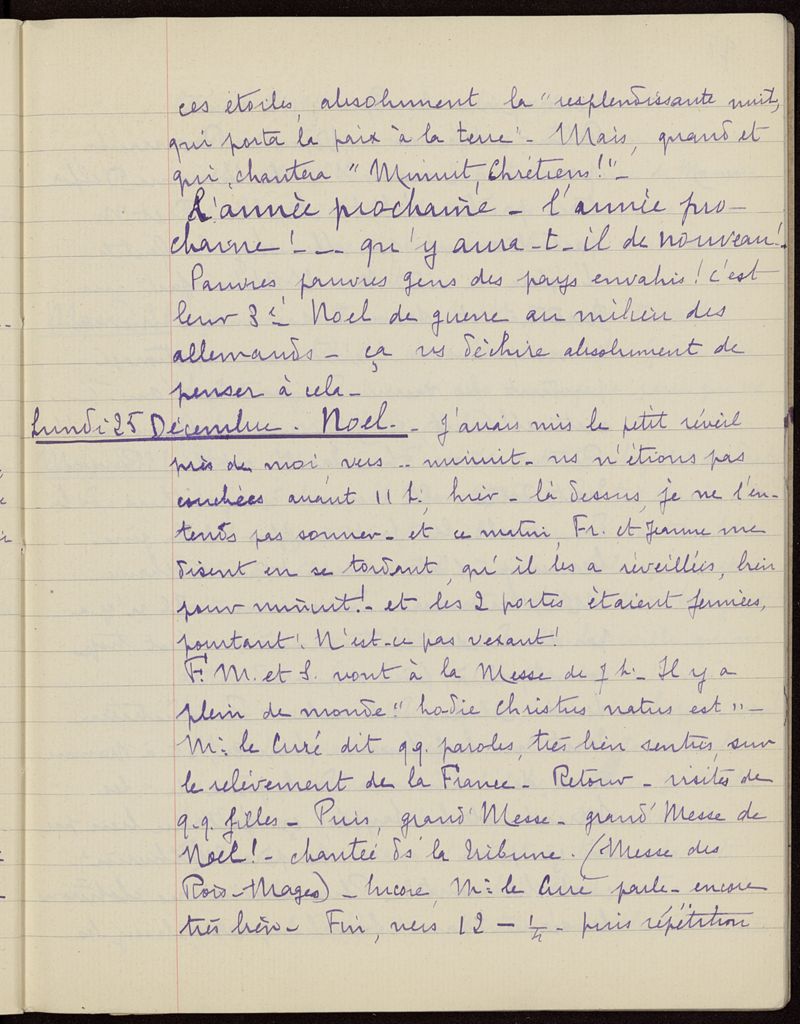 ces étoiles, absolument la "resplendissante nuit,
qui porta la paix à la terre" - Mais, quand et
qui, chantera "Minuit, Chrétiens!" -
L'année prochaine - l'année pro-
chaine! - - - qu'y aura-t-il de nouveau!
Pauvres pauvres gens des pays envahis! c'est
leur 3è Noel de guerre au milieu des
allemands - ça ns déchire absolument de
penser à cela -
Lundi 25 Décembre. Noel. - J'avais mis le petit réveil
près de moi, vers .. minuit - ns n'étions pas
couchées avant 11 h, hier - là dessus, je ne l'en-
tends pas sonner - et ce matin, Fr. et Jeanne me
disent en se tordant, qu'il les a réveillées, bien
pour minuit! - et les 2 portes étaient fermées,
pourtant! N'est-ce pas vexant!
F. M. et S. vont à la Messe de 7 h - Il y a
plein de monde "hodie Christus natus est" -
Mr le Curé dit qq. paroles, très bien senties, sur
le relèvement de la France - Retour - visites de
q.q. filles - Puis, grand'Messe - grand'Messe de
Noel! - chantée ds la Tribune. (Messe des
Rois-Mages) - Encore, Mr le Curé parle - encore
très bien - Fin, vers 12 - 1/4 - puis répétition